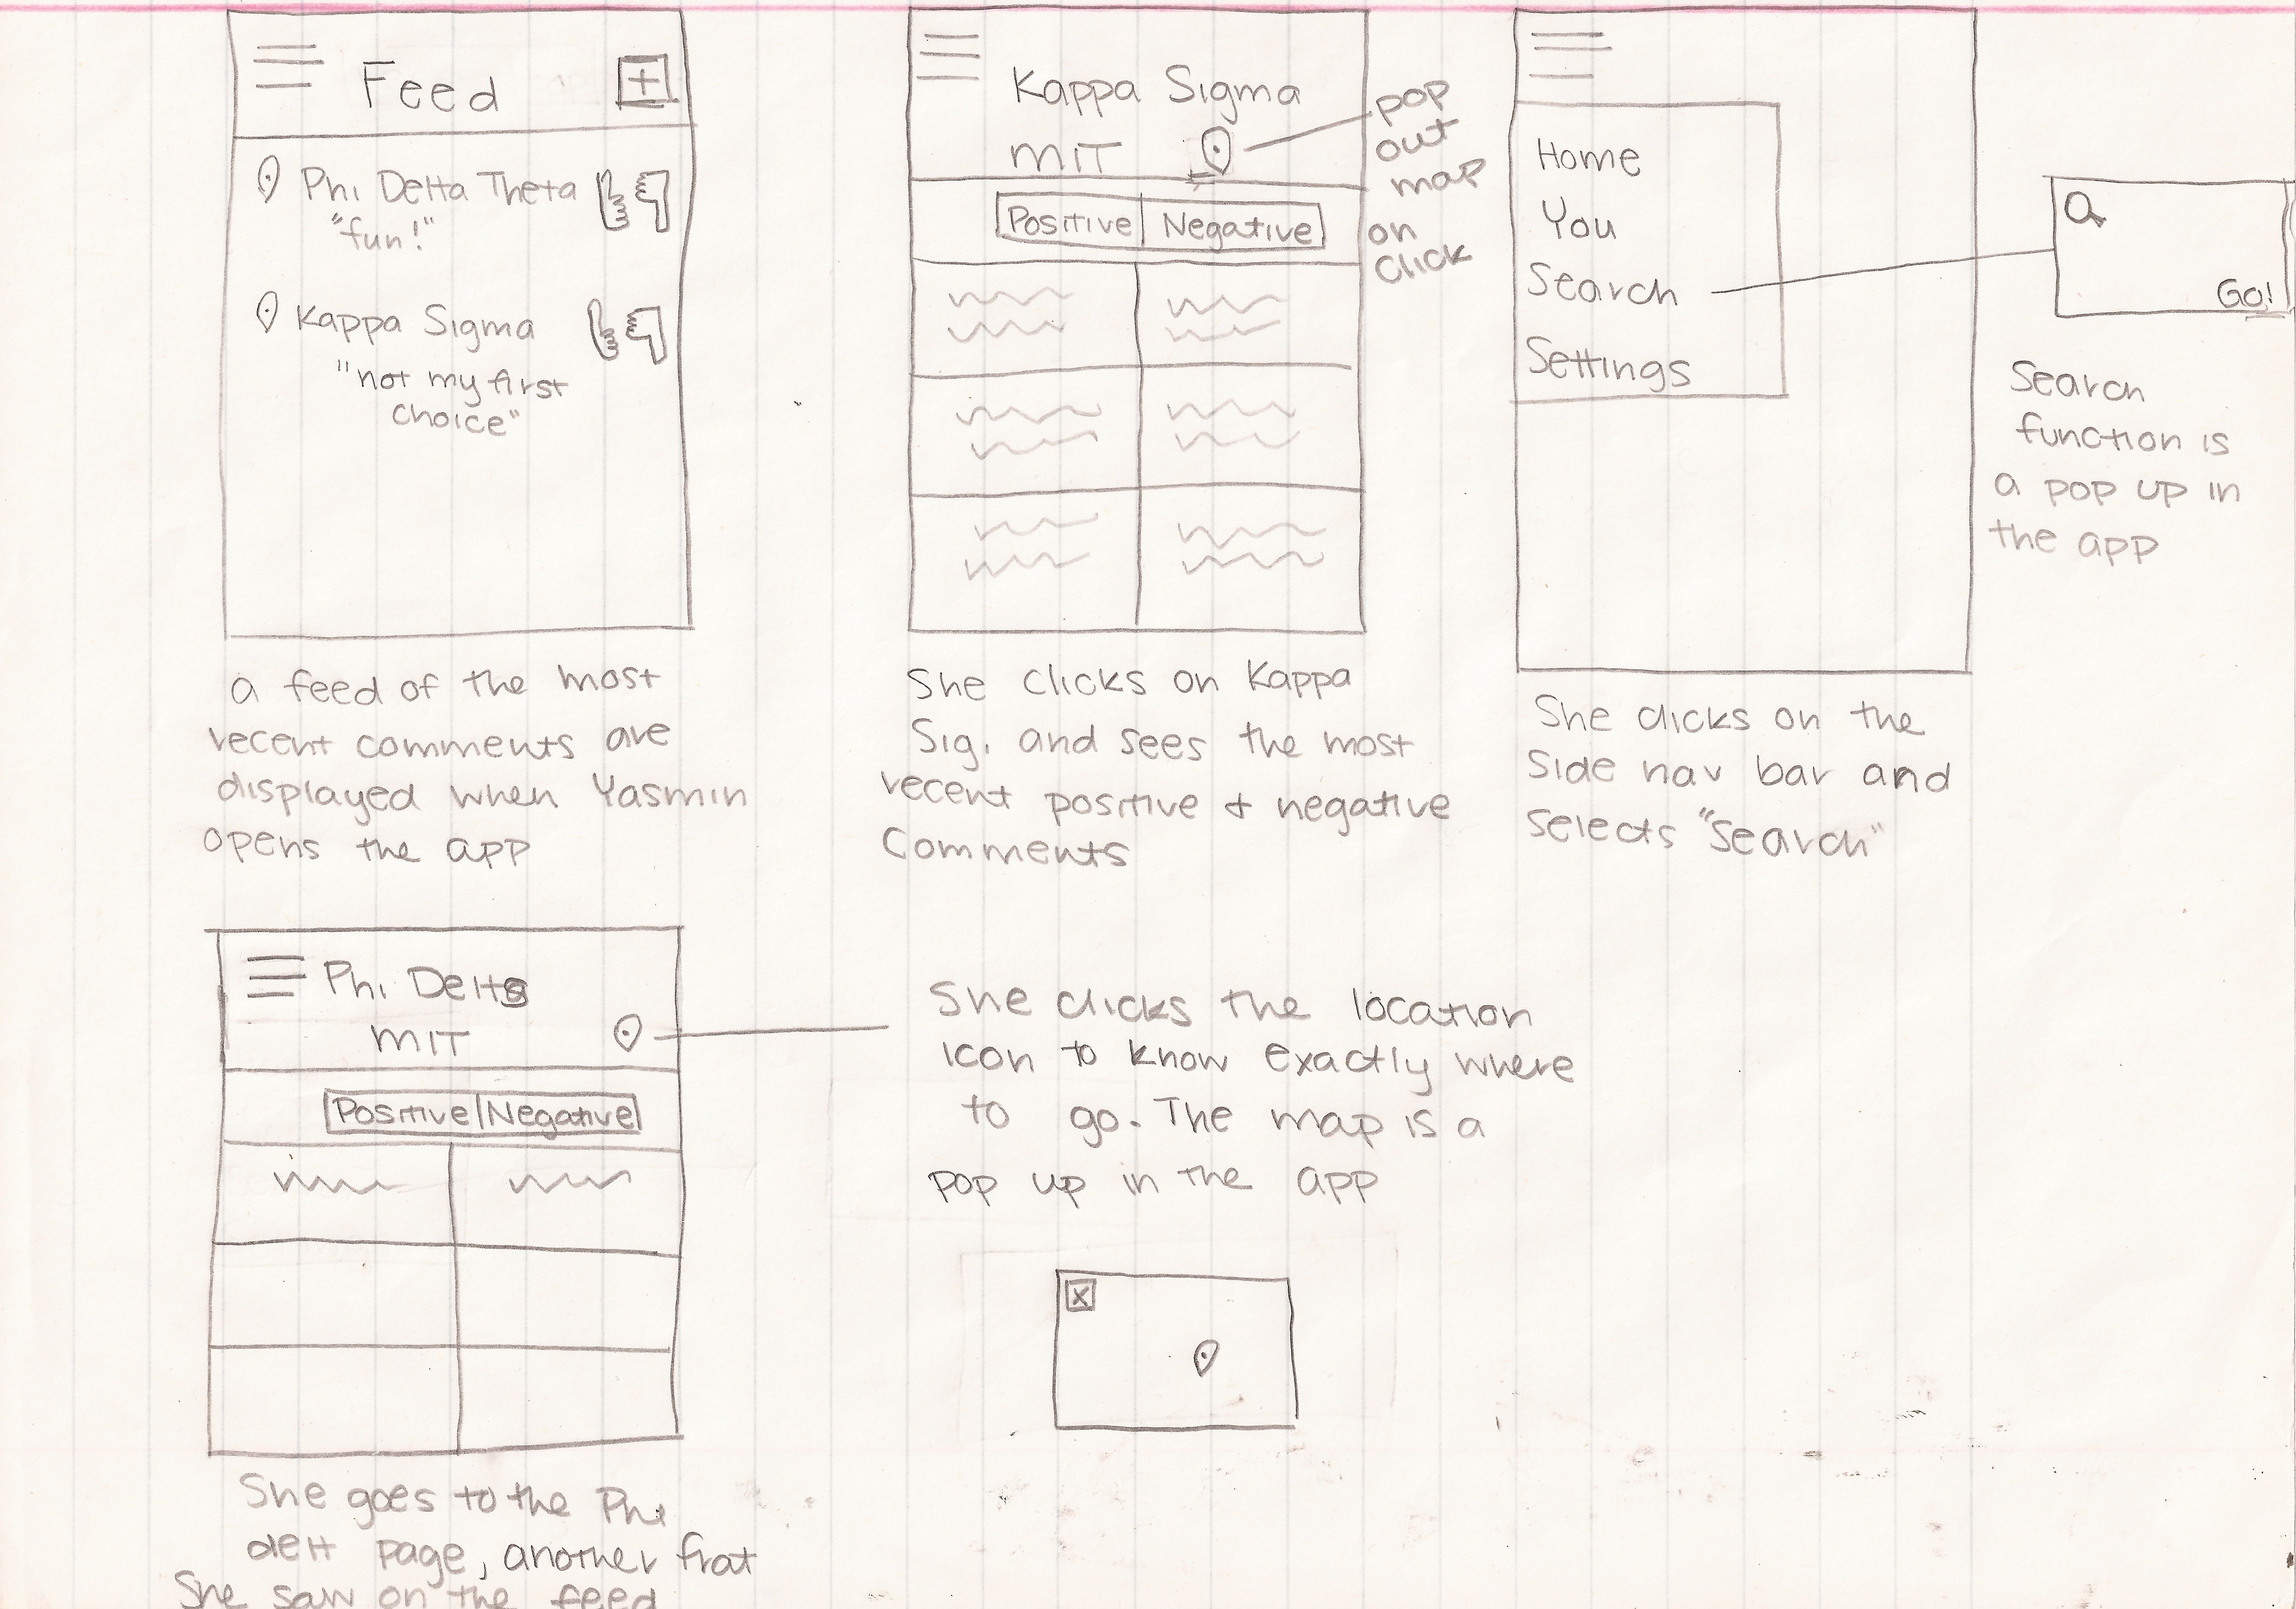 Feed
Phi Delta Theta
"fun!"
Kappa Sigma
"not my first
choice"
a feed of the most
recent comments are
displayed when Yasmin
opens the app
Kappa Sigma
MIT
pop
out
map
on
click
Positive Negative
She clicks on Kappa
Sig. and sees the most
recent positive + negative
Comments
Home
You
Search
Settings
Go!
Search
function is
a pop up in
the app
She clicks on the
side nav bar and
selects "Search"
Phi Delts
MIT
Positive Negative
She goes to the Phi
delt page, another frat
She saw on the feed
She clicks the location
icon to know exactly where
to go. The map is a
pop up in the app
X